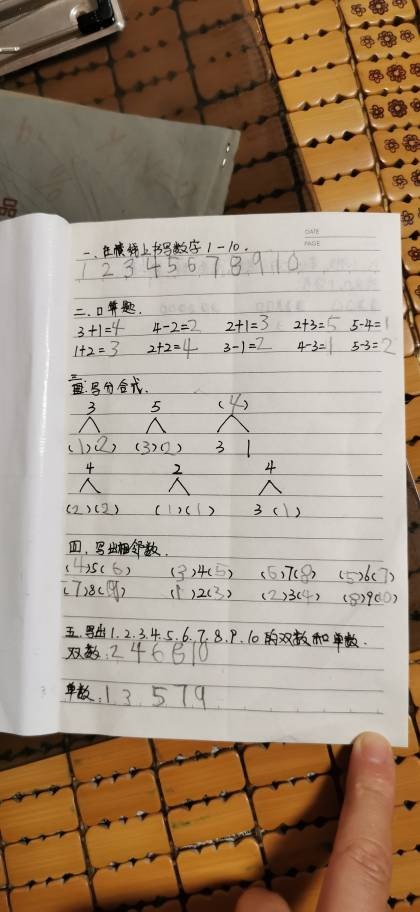 DATE
PAGE
一、在横线上书写数字1-10.
1 2 3 4 5 6 7 8 9 10
二、口算题.
3+1=4 4-2=2 2+1=3 2+3=5 5-4=1
1+2=3 2+2=4 3-1=2 4-3=1 5-3=2
三、写分合式.
3 5 (4)
(1)(2) (3)(2) 3 1
4 2 4
(2)(2) (1)(1) 3(1)
四、写出相邻数.
(4)5(6) (3)4(5) (6)7(8) (5)6(7)
(7)8(9) (1)2(3) (2)3(4) (8)9(10)
五.写出1.2.3.4.5.6.7.8.9.10的双数和单数.
双数:2 4 6 8 10
单数:1 3 5 7 9